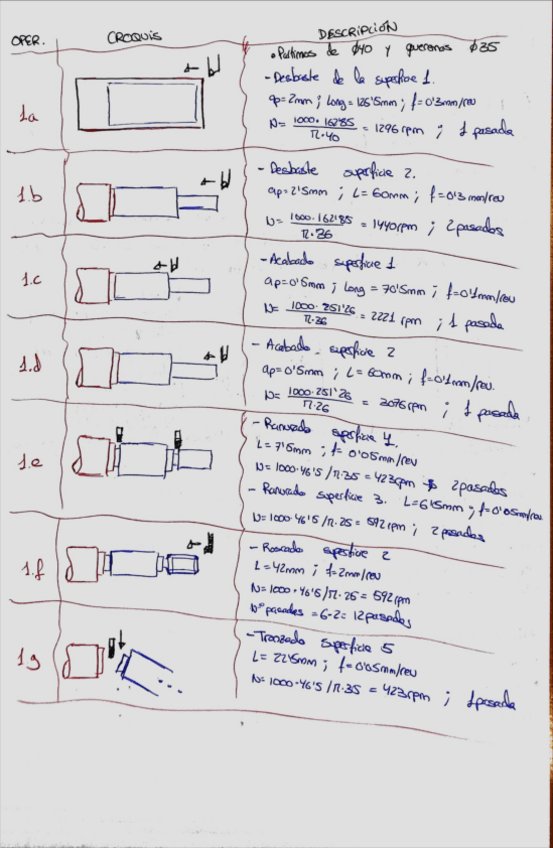 OPER. CROQUIS DESCRIPCIÓN
• Partimos de ϕ40 y queremos ϕ35
1a
- Desbaste de la superficie 1.
ap=2mm ; Long=126'5mm ; f=0'3mm/rev
N= 1000·162'85 / π·40 = 1296rpm ; 1 pasada
1.b
- Desbaste superficie 2.
ap=2'5mm ; L=60mm ; f=0'3mm/rev
N= 1000·162'85 / π·36 = 1440rpm ; 2 pasadas
1.c
- Acabado superficie 1
ap=0'5mm ; Long=70'5mm ; f=0'1mm/rev
N= 1000·251'26 / π·36 = 2221 rpm ; 1 pasada
1.d
- Acabado superficie 2
ap=0'5mm ; L=60mm ; f=0'1mm/rev.
N= 1000·251'26 / π·26 = 3076rpm ; 1 pasada
1.e
- Ranurado superficie 4.
L=7'5mm ; f=0'05mm/rev
N=1000·46'5/π·35=423rpm 2 pasadas
- Ranurado superficie 3. L=6'5mm ; f=0'05mm/rev
N=1000·46'5/π·25=592rpm ; 2 pasadas
1.f
- Roscado superficie 2
L=42mm ; f=2mm/rev
N=1000·46'5/π·25=592rpm
Nº pasadas=6·2=12pasadas
1g
- Tronzado superficie 5
L=22'5mm ; f=0'05mm/rev
N=1000·46'5/π·35=423rpm ; 1 pasada